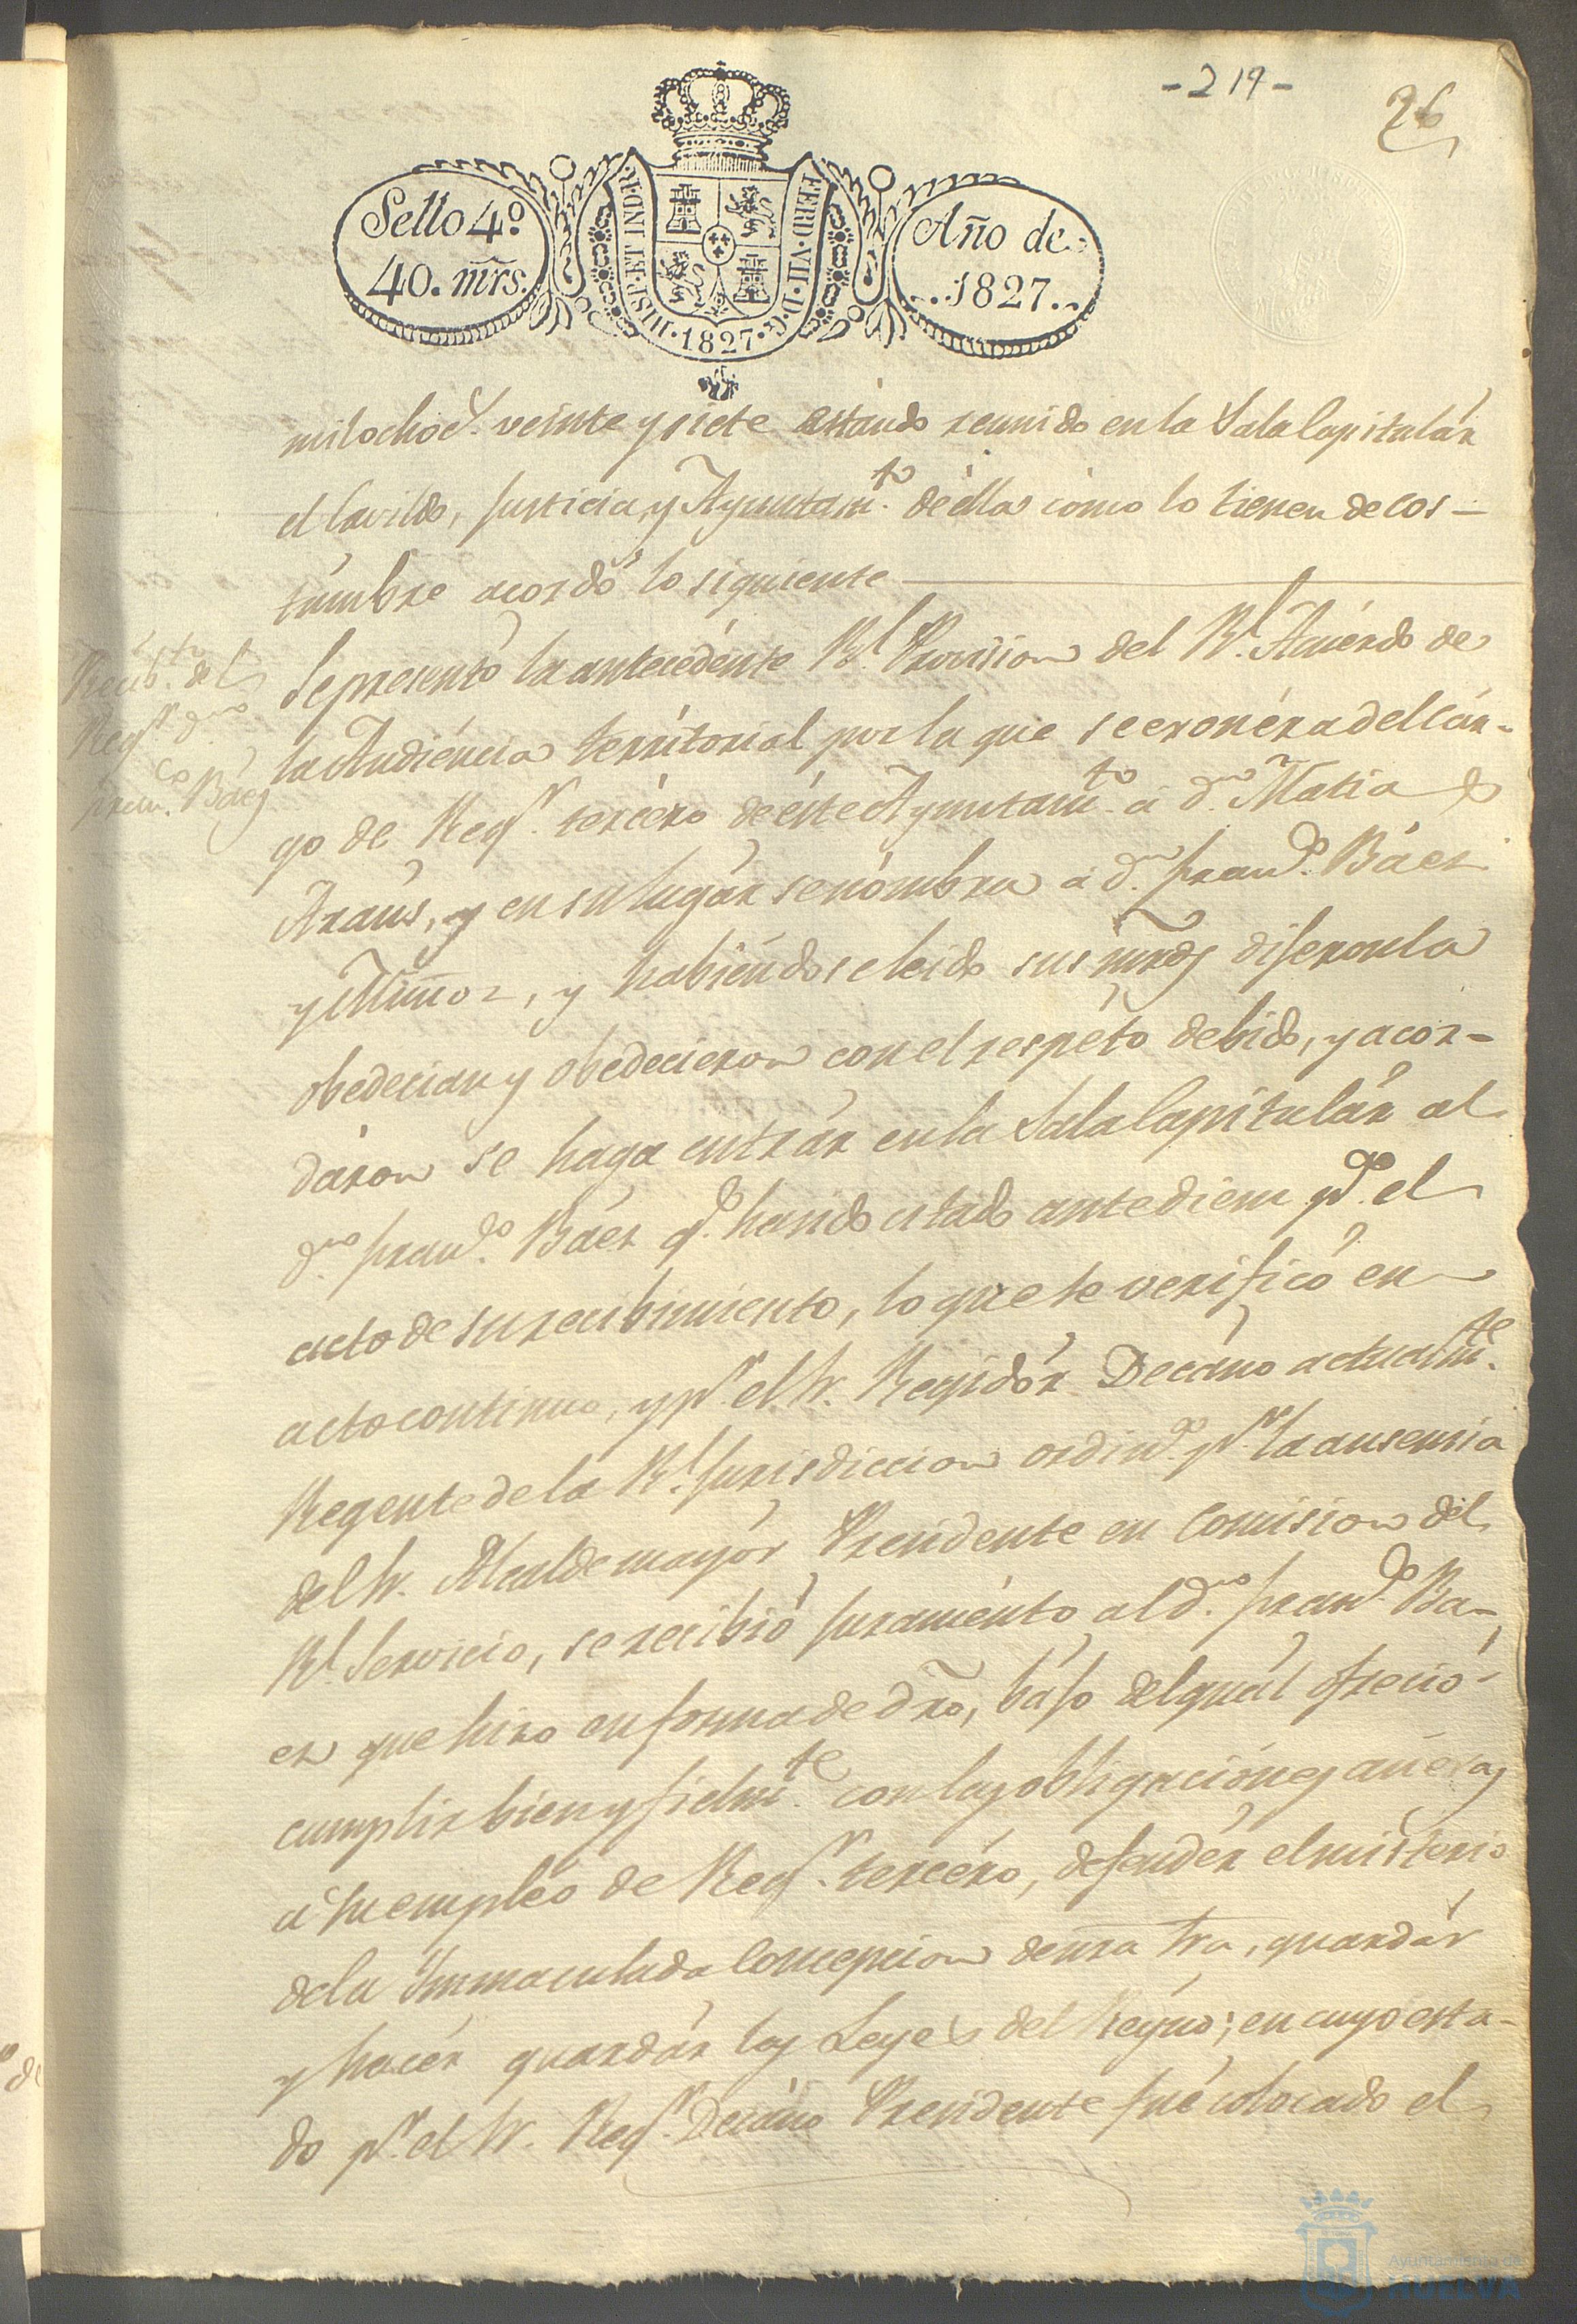 - 219 -
26
Sello 4º
40. mrs.
HISP. ET IND. R.
FERD. VII. D. G.
1827
Año de
1827.
mil ochocs. veinte y siete estando reunido en la Sala Capitulár
el Cavildo, Justicia, y Ayuntamto. de élla como lo tienen de cos-
túmbre acordó lo siguiente
Recib. del
Regr. 3º
Franco. Báez
Se presentó la antecedénte Rl. Provision del Rl. Acuérdo de
la Audiéncia territoriál por la que se exonéra del cár-
go de Regr. tercéro de éste Ayuntamto. á dn. Matias
Araús, y en su lugár se nómbra á dn. Franco. Báez
y Muñoz, y habiéndose leido sus mrds dijeron la
obedecian y obedecieron con el respéto debido, y acor-
dáron se haga entrár en la Sala Capitulár al
dn. Franco. Báez q. ha sido citado antediem pa. el
acto de su recibimiento, lo que se verificó en
acto continuo, y pr. el Sr. Regidór Decáno actualmte.
Regente de la Rl. Jurisdiccion ordina. pr. la ausencia
del Sr. Alcalde mayór Presidente en Comision del
Rl. Servicio, se recibió juraménto al dn. Franco. Ba-
ez que hizo en forma de dro, bájo del quál ofreció
cumplir bien y fielmte. con las obligaciónes anéxas
á su empléo de Regr. tercéro, defendér el mistério
de la Immaculada Concepcion de nra Sra, guardár
y hacér guardár las Leyes del Réyno; en cuyo esta-
do pr. el Sr. Regr. Decáno Presidente fué colocado el
Ayuntamiento de
HUELVA